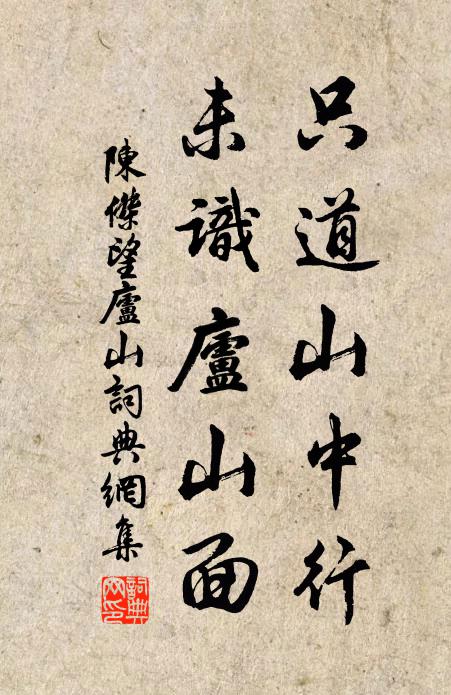 只道山中行
未識廬山面
陳傑望廬山詞典網集
詞典网印